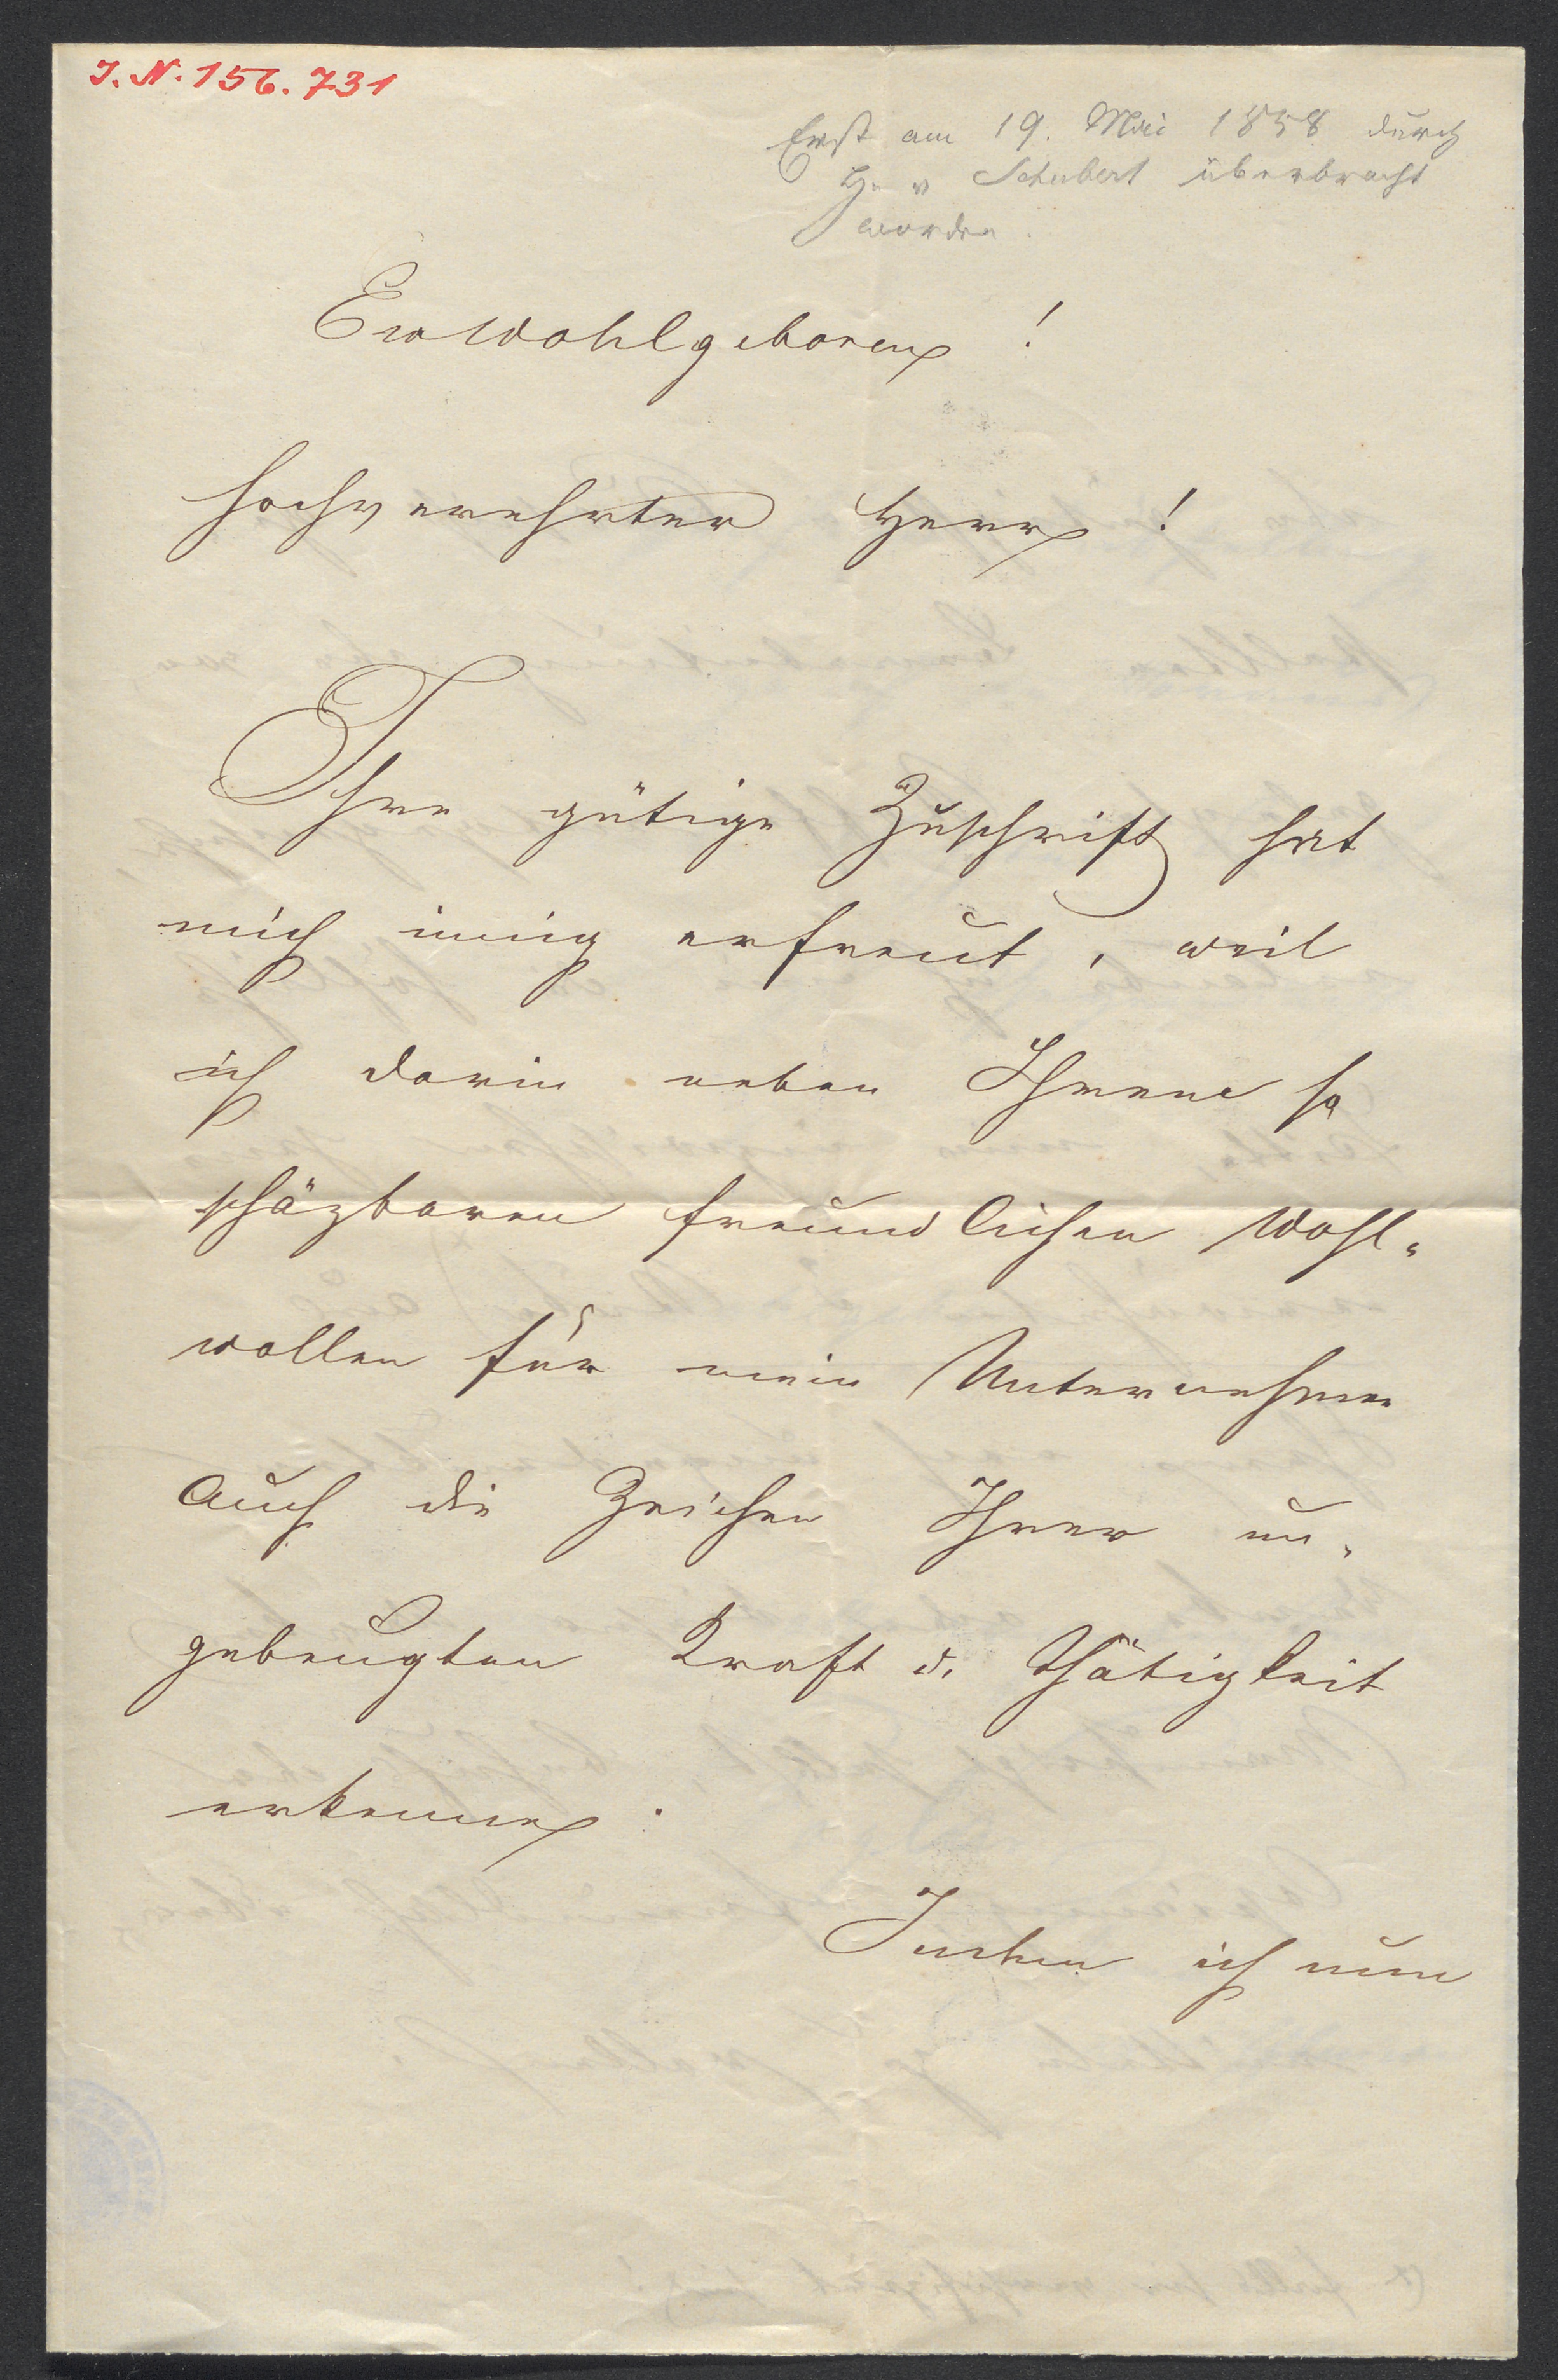 J. N. 156.731
Erst am 19. Mai 1858 durch
H. v Schubert überbracht
worden.
Ew Wohlgeboren!
hochverehrter Herr!
Ihre gütige Zuschrift hat
mich innig erfreut, weil
ich darin neben Ihrem so
schäzbaren freundlichen Wohl-
wollen für mein Unternehmen
auch die Zeichen Ihrer un-
gebeugten Kraft u. Thätigkeit
erkenne.
Indem ich nun